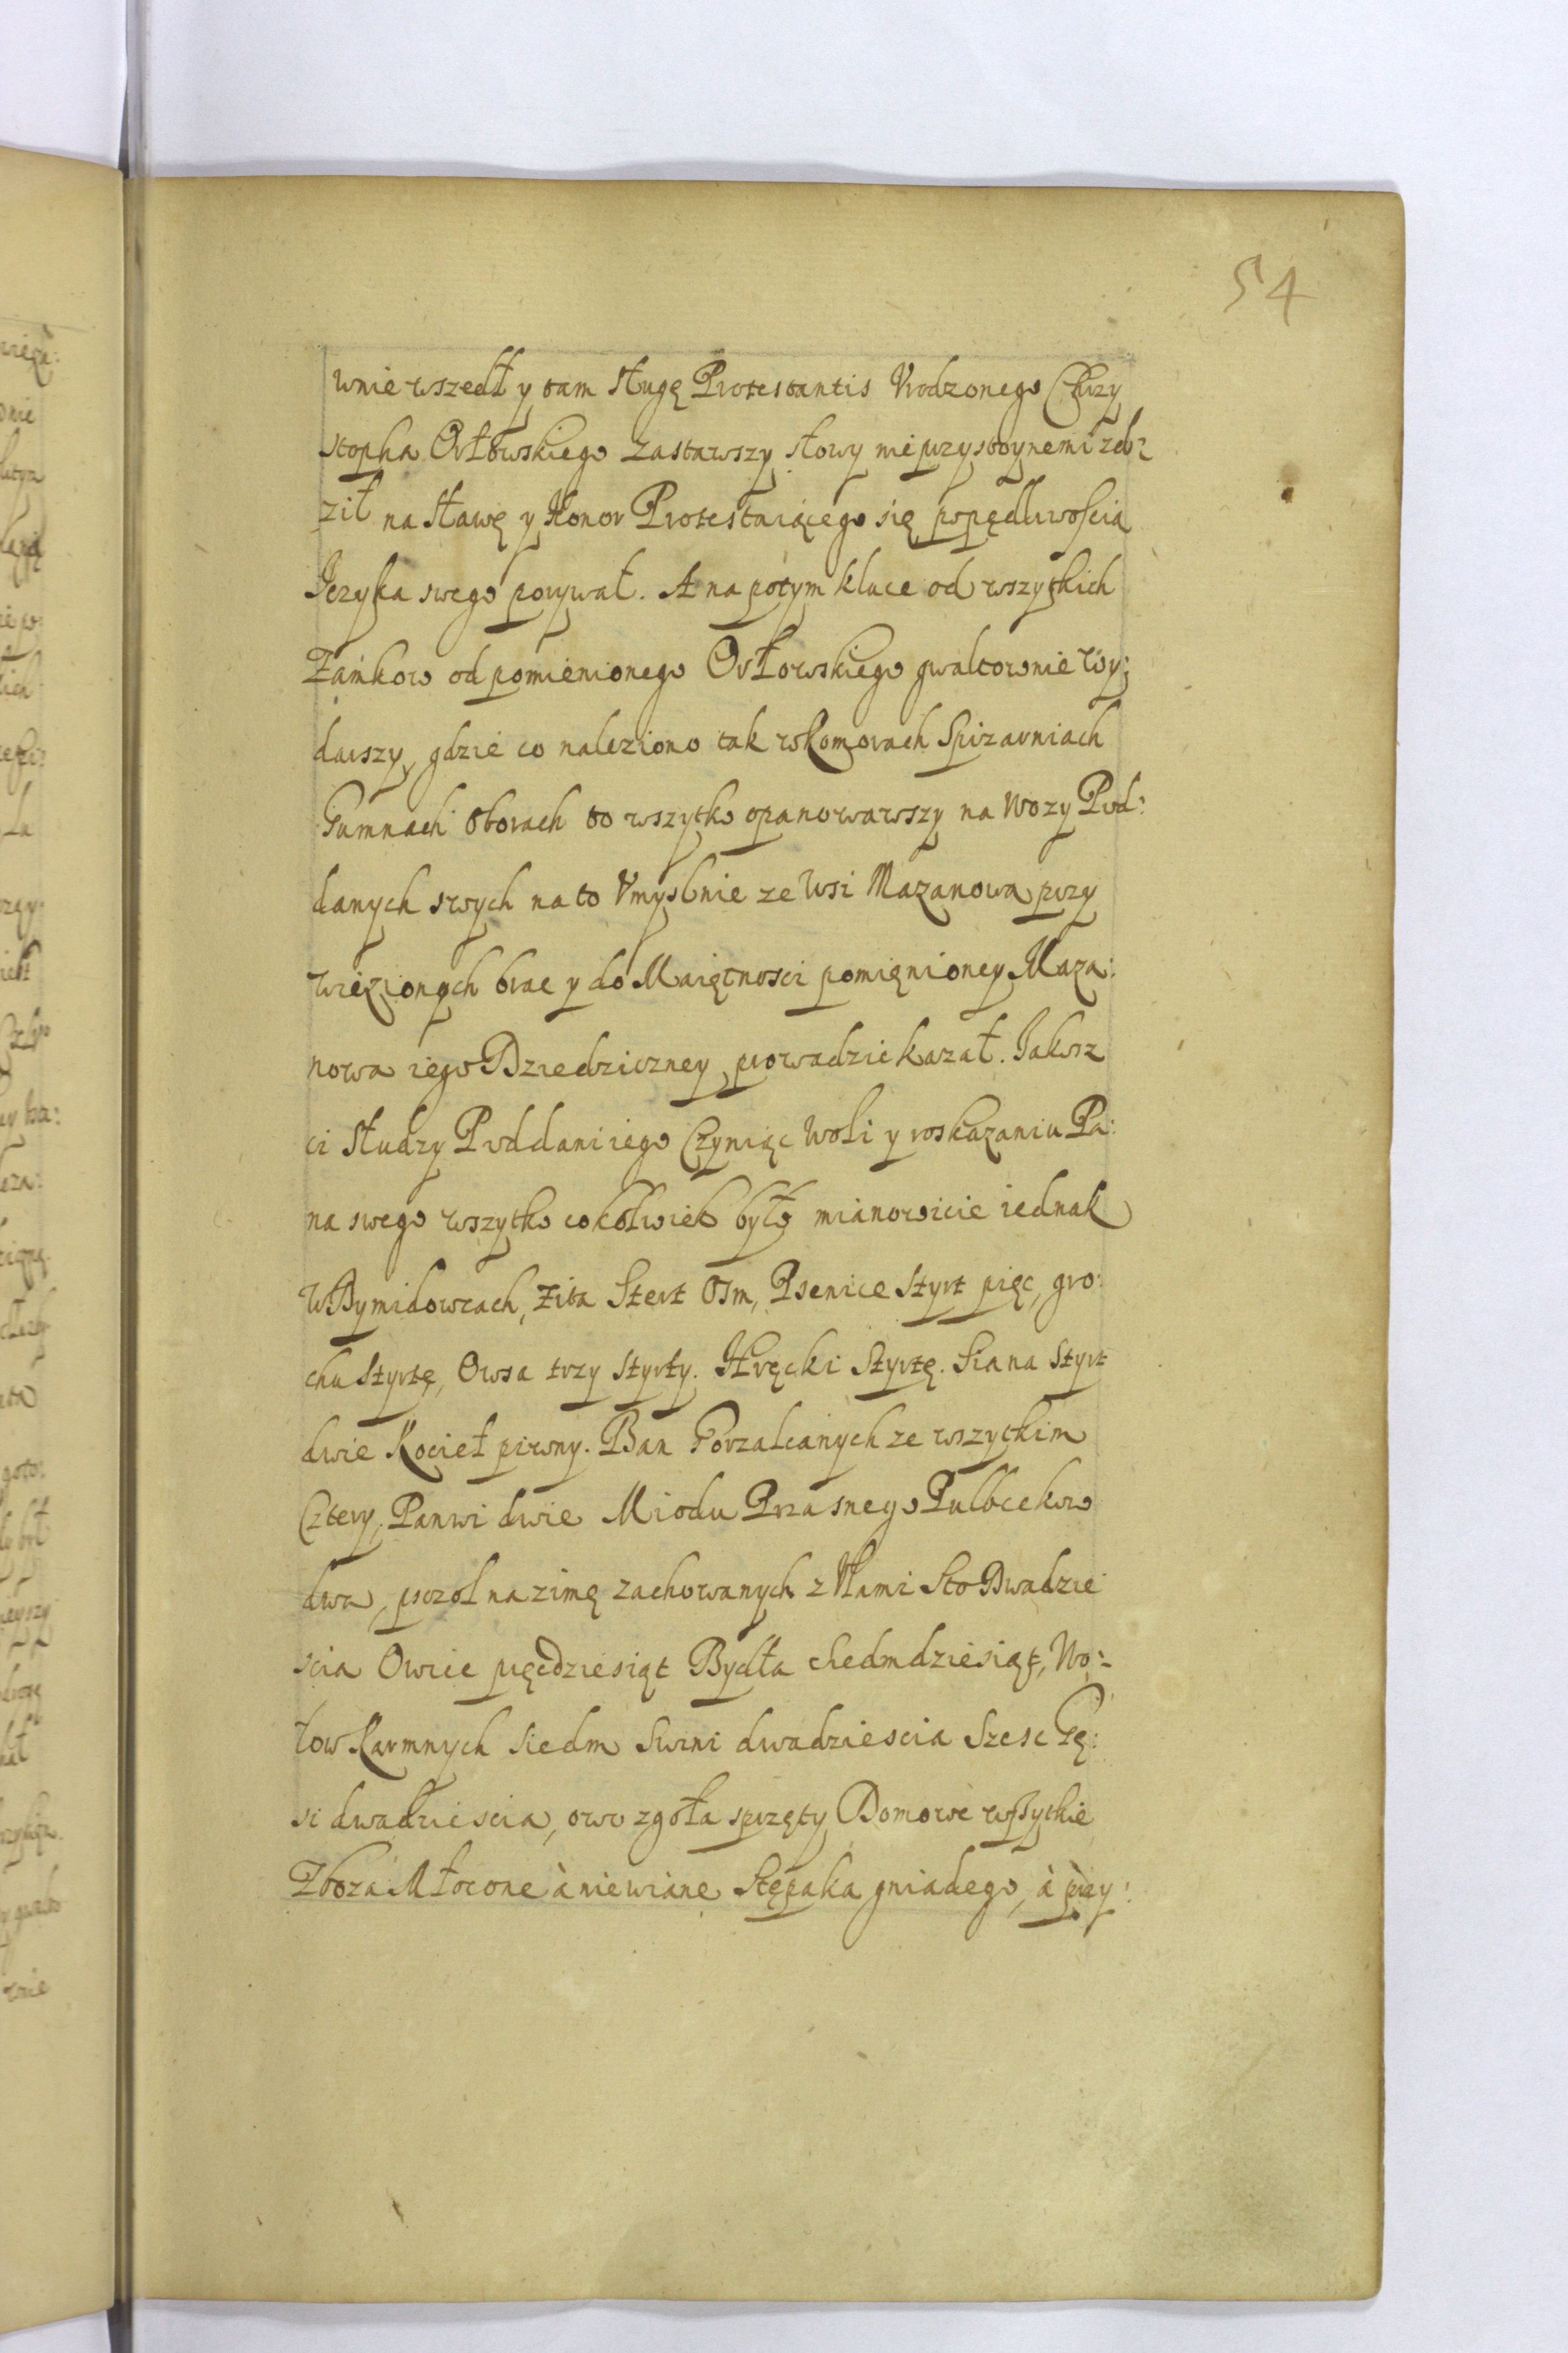 54
wnie wszedł y tam sługę Protestantis Vrodzonego Chrzy
stopha Orłowskiego zastawszy słowy nieprzystoynemi zel:
ził na sławę y Honor Protestuiącego się popędliwoscią
Ięzyka swego porywał. A na potym kluce od wszytkich
Zamkow od pomienionego Orłowskiego gwałtownie wy:
darszy, gdzie co naleziono tak w Komorach Spizarniach
Gumnach Oborach to wszytko opanowawszy na Wozy Pod:
danych swych na to Vmyslnie ze Wsi Mazanowa przy
wiezionych brac y do Maiętnosci pomięnioney Maza:
nowa iego Dziedziczney prowadzic kazał. Jakosz
ci słudzy Poddani iego Czyniąc Woli y roskazaniu Pa:
na swego wszytko cokolwiek było mianowicie iednak
w Dymidowcach, Zita Stert Osm, Psenice Styrt pięc, gro:
chu Styrtę, Owsa trzy Styrty. Hręcki Styrtę. Siana Styrt
dwie Kocieł piwny. Ban Gorzalcanych ze wszytkim
Cztery, Panwi dwie Miodu Przasnego Pulbcekow
dwa, psczoł na zimę zachowanych z Vlami Sto Dwadzie
scia Owiec pięcdziesiąt Bydła siedmdziesiąt, Wo:
łow Karmnych Siedm Swini dwadziescia Szesc Gę:
si dwadziescia, owo zgoła sprzęty Domowe wszytkie
Zboza Młocone à niewiane Stępaka gniadego, à przy: